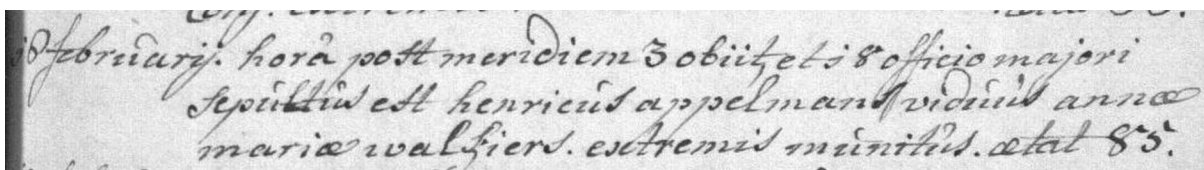 18 februarij. horâ post meridiem 3 obiit, et i8 officio majori
sepultus est henricus appelmans viduus annæ
mariæ walkiers. extremis munitus. ætat 85.